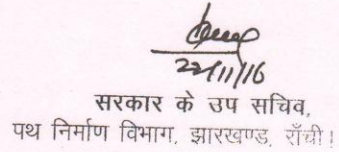 22/11/16
सरकार के उप सचिव,
पथ निर्माण विभाग, झारखण्ड, राँची।